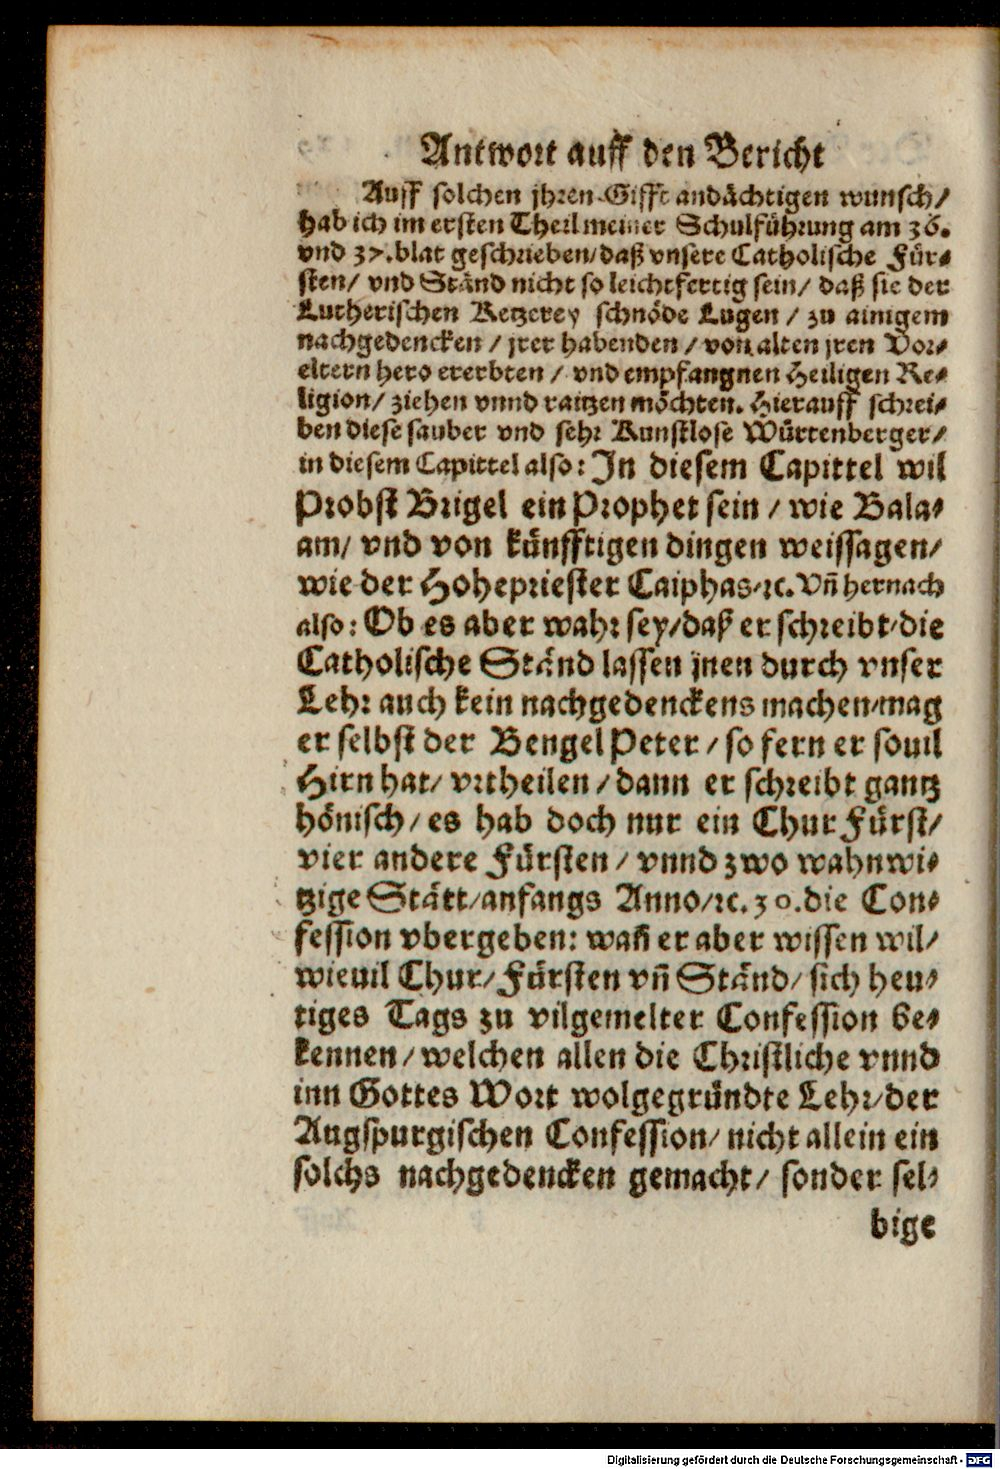 Antwort auff den Bericht
Auff solchen jhren Gifft andächtigen wunsch/
hab ich im ersten Theil meiner Schulführung am 36.
vnd 37. blat geschrieben/ daß vnsere Catholische Für-
sten/ vnd Ständ nicht so leichtfertig sein/ daß sie der
Lutherischen Ketzerey schnöde Lugen / zu ainigem
nachgedencken / jrer habenden / von alten jren Vor-
eltern hero ererbten / vnd empfangnen Heiligen Re-
ligion/ ziehen vnnd raitzen möchten. Hierauff schrei-
ben diese sauber vnd sehr Kunstlose Würtenberger/
in diesem Capittel also: In diesem Capittel wil
Probst Brigel ein Prophet sein / wie Bala-
am/ vnd von künfftigen dingen weissagen/
wie der Hohepriester Caiphas/ ꝛc. Vñ hernach
also: Ob es aber wahr sey/ daß er schreibt/ die
Catholische Ständ lassen jnen durch vnser
Lehr auch kein nachgedenckens machen/ mag
er selbst der Bengel Peter / so fern er souil
Hirn hat/ vrtheilen / dann er schreibt gantz
hönisch / es hab doch nur ein Chur Fürst/
vier andere Fürsten / vnnd zwo wahnwi-
tzige Stätt/ anfangs Anno/ ꝛc. 30. die Con-
fession vbergeben: wañ er aber wissen wil/
wieuil Chur/ Fürsten vñ Ständ/ sich heu-
tiges Tags zu vilgemelter Confession be-
kennen / welchen allen die Christliche vnnd
inn Gottes Wort wolgegründte Lehr/ der
Augspurgischen Confession/ nicht allein ein
solchs nachgedencken gemacht/ sonder sel-
bige
Digitalisierung gefördert durch die Deutsche Forschungsgemeinschaft - DFG